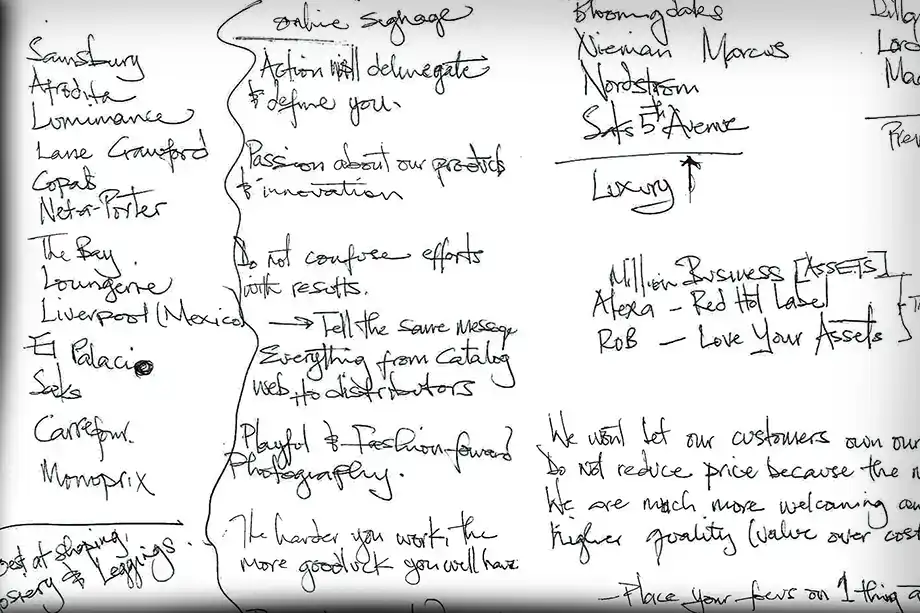 Sainsbury
Afrodita
Lumimance
Lane Crawford
Copat
Net-a-Porter
The Bay
Loungerie
Liverpool (Mexico)
El Palacio
Saks
Carrefour.
Monoprix
Best at shaping.
& Leggings.
online signage
Action will delinegate
& define you.
Passion about our products
& innovation
Do not confuse efforts
with results.
→ Tell the same message
Everything from Catalog
web to distributors
Playful & Fashion-forward
Photography.
The harder you work, the
more goodluck you will have
Bloomingdales
Nieman Marcus
Nordstrom
Saks 5th Avenue
Luxury ↑
Million Business [ASSETS]
Alexa – Red Hot Label
ROB – Love Your Assets
We wont let our customers own our
Do not reduce price because the
We are much more welcoming
Higher quality (value over cost
– Place your focus on 1 thing